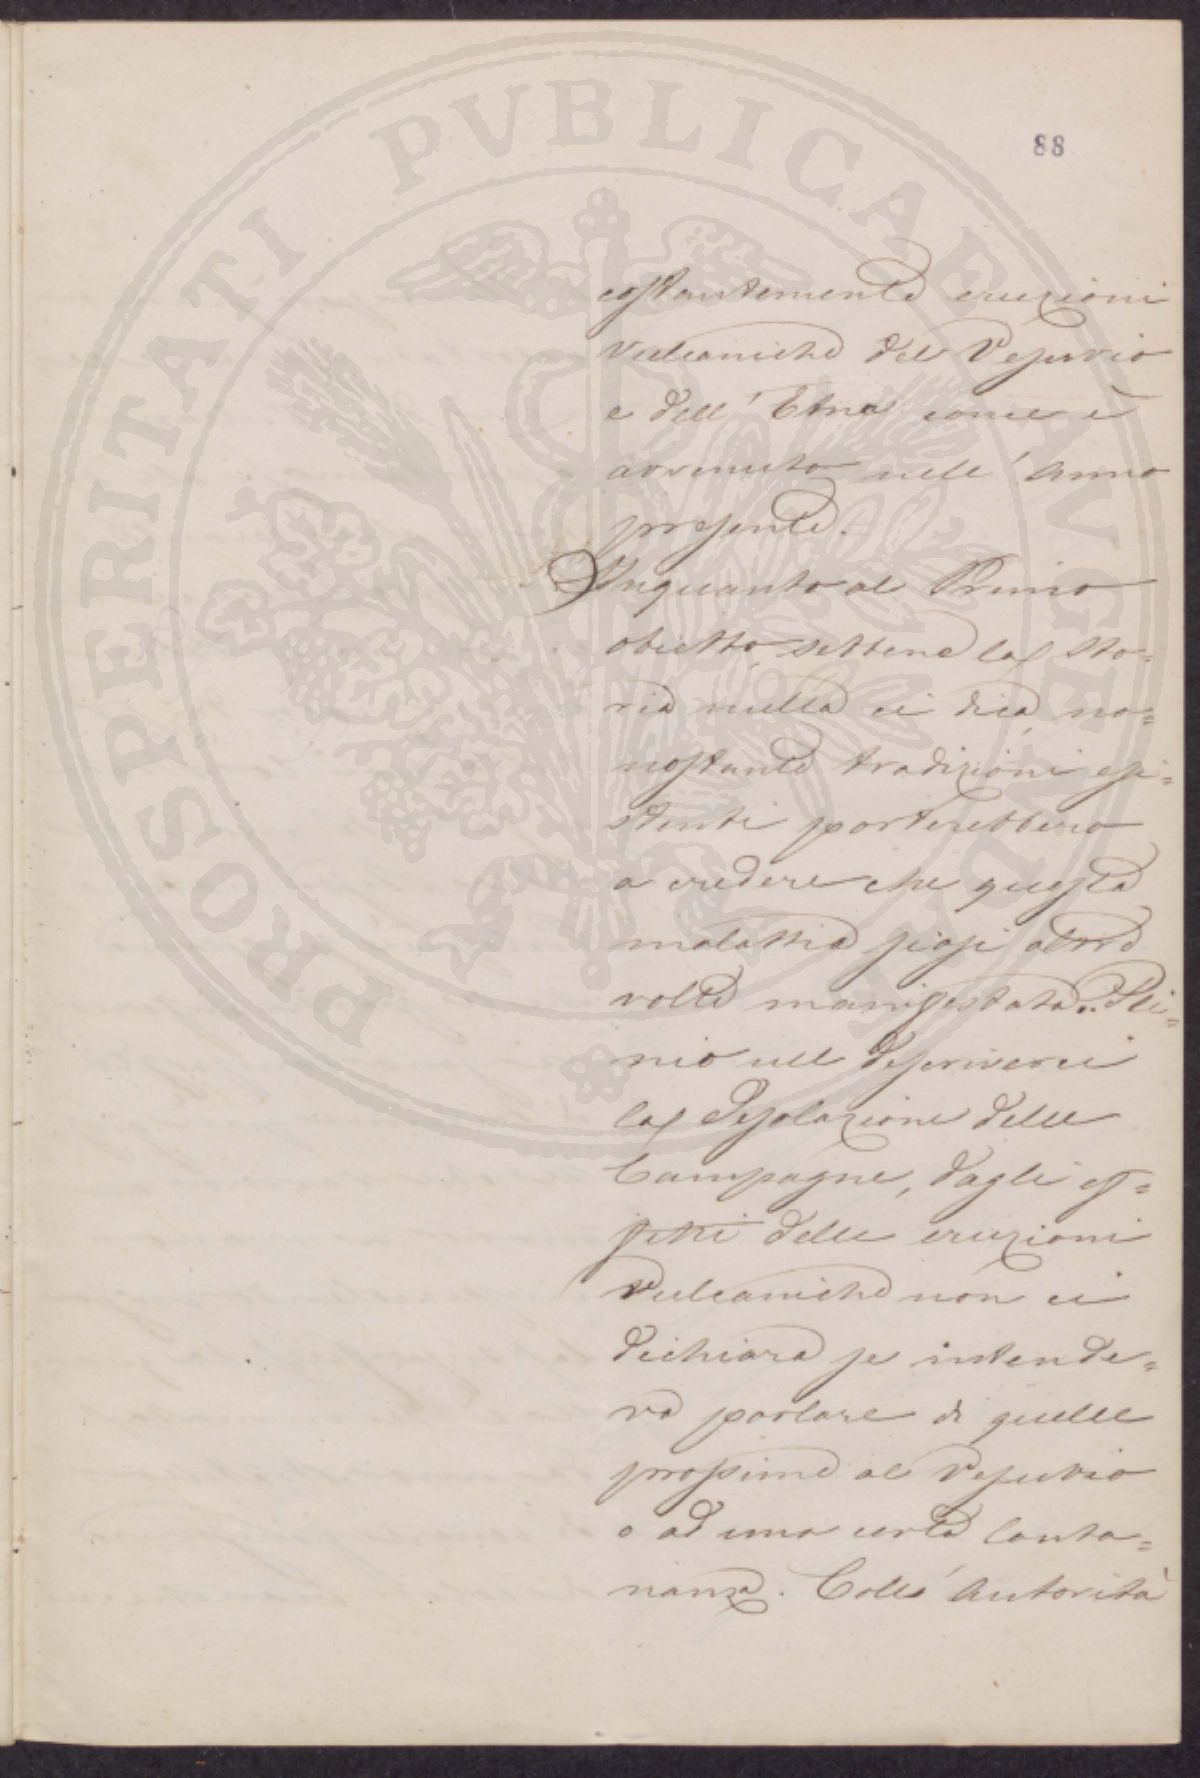 PROSPERITATI PVBLICAE AVGENDAE
88
costantemente eruzioni
vulcaniche del Vesuvio
e dell' Etna come è
avvenuto nell' anno
presente.
Inquanto al Primo
obietto, sebbene la sto=
ria nulla ci dica, no=
nostante tradizioni esi=
stenti porterebbero
a credere che questa
malattia siasi altre
volte manifestata. Pli=
nio nel descriverci
la desolazione delle
Campagne, dagli ef=
fetti delle eruzioni
Vulcaniche non ci
dichiara se intende=
va parlare di quelle
prossime al Vesuvio
o ad una certa lonta=
nanza. Coll' Autorità